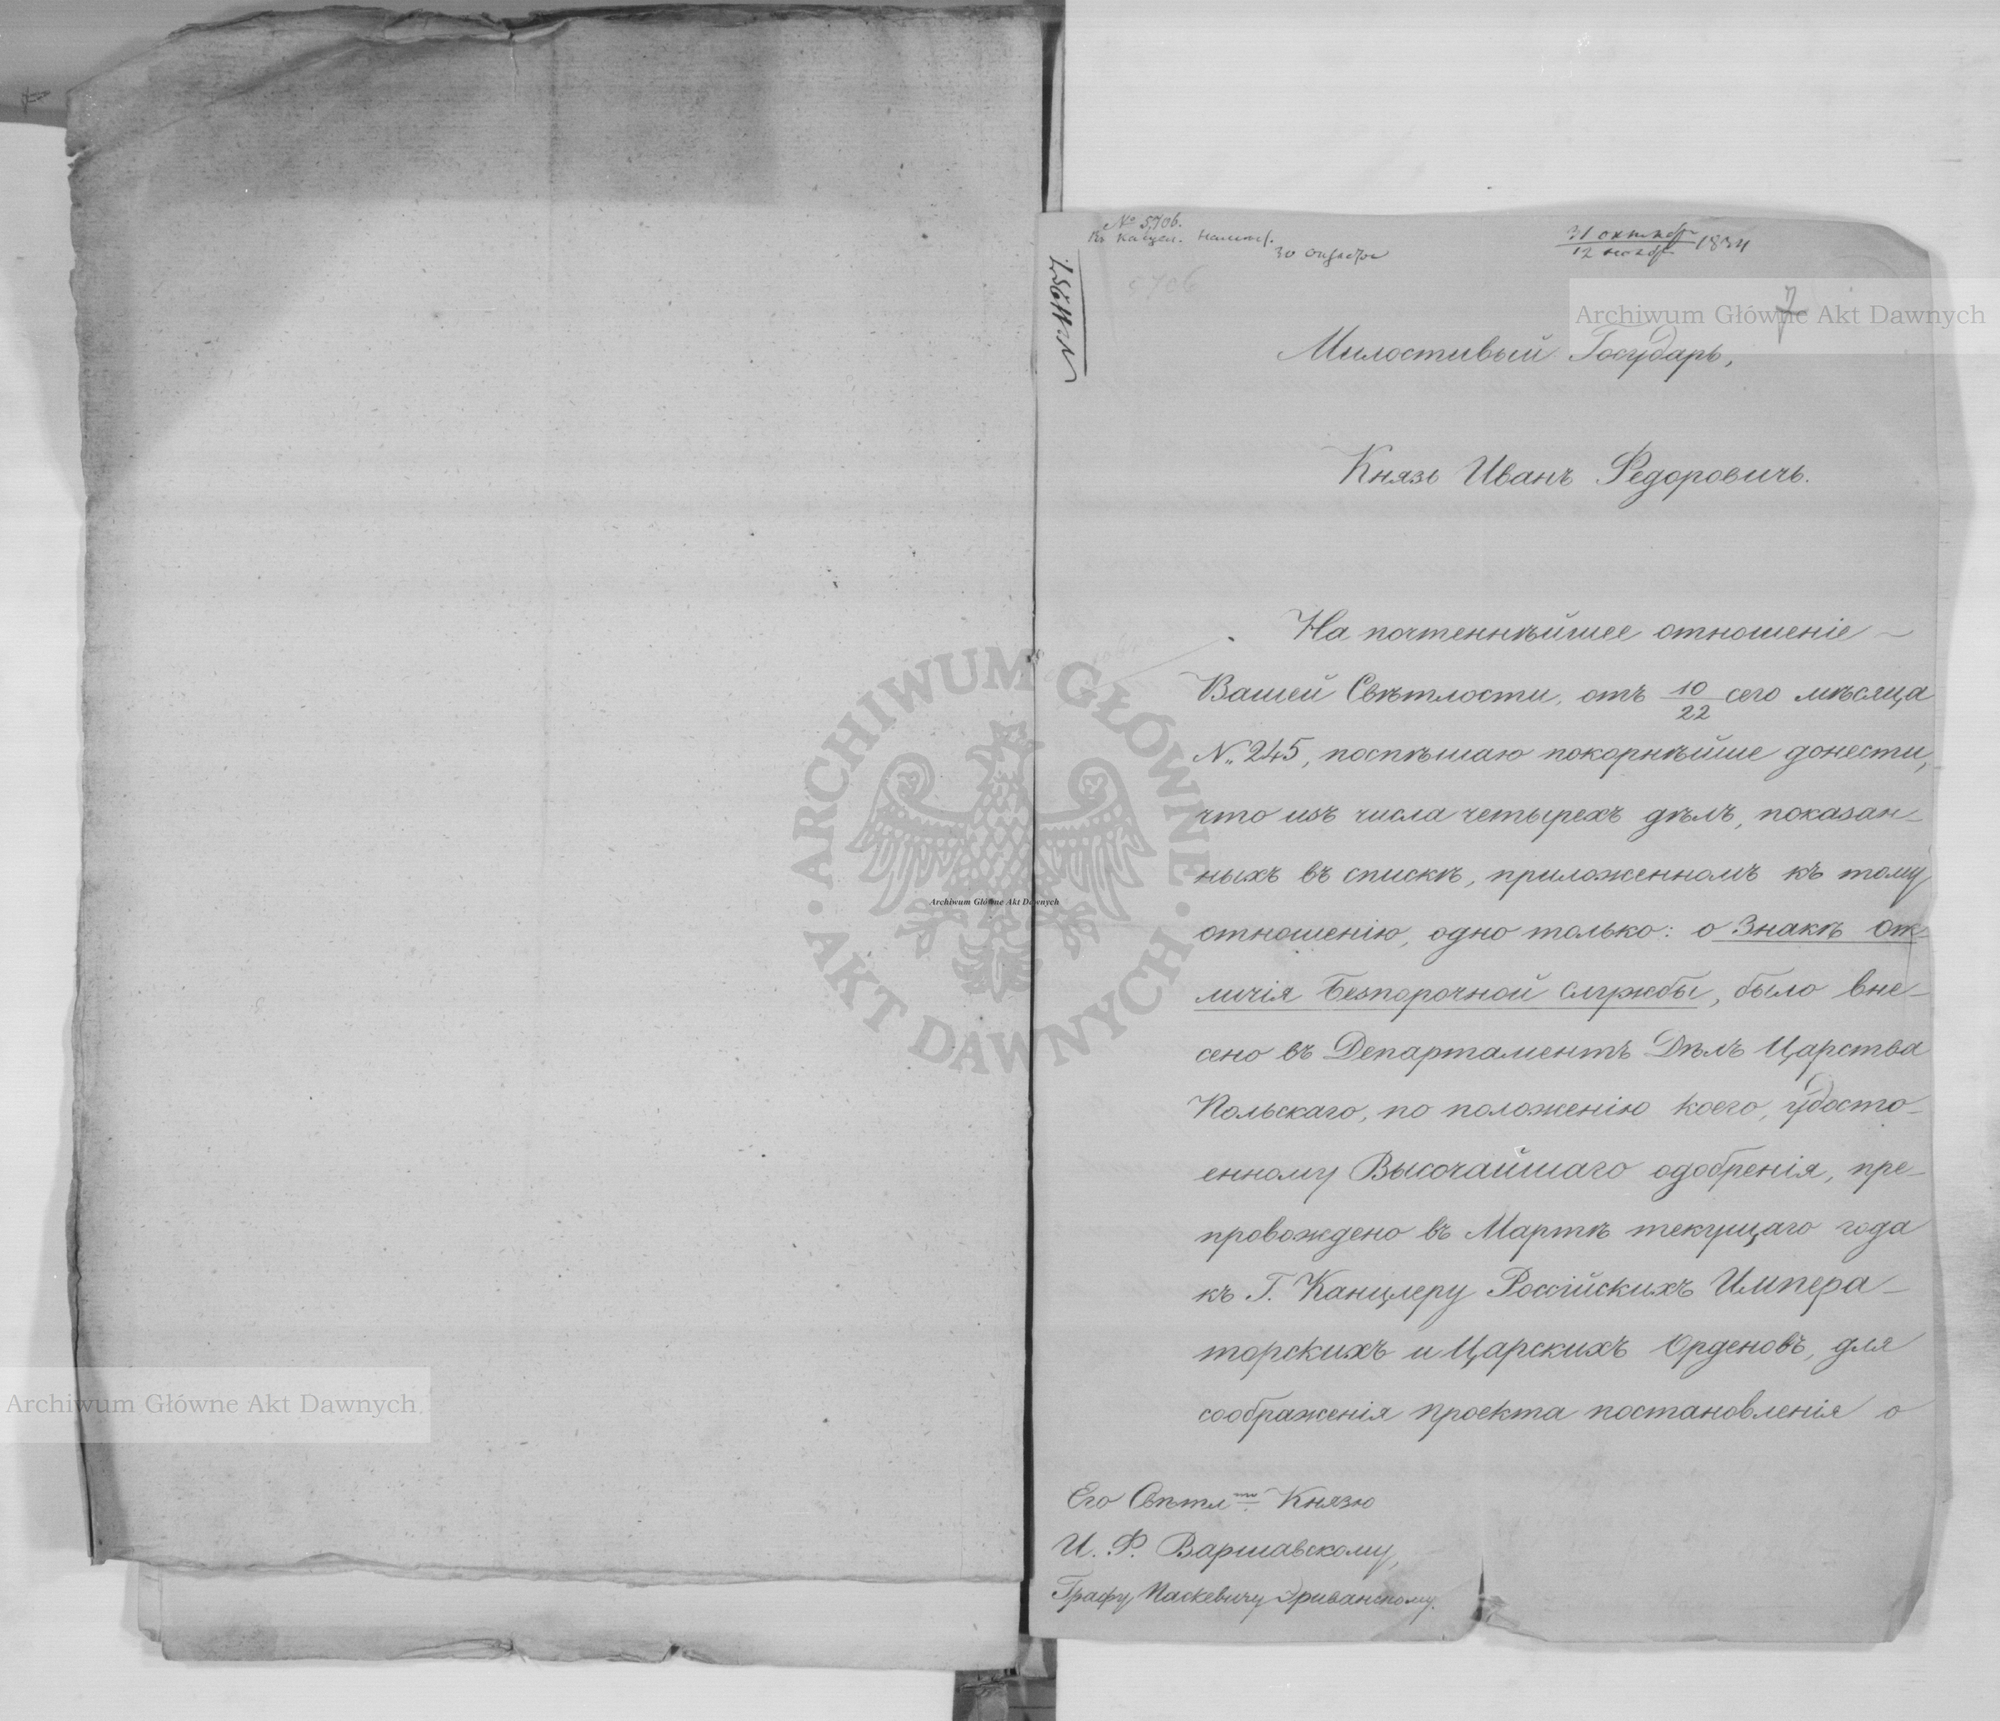 № 5706.
Въ Канцел. Намѣст.
30 октября
31 октября
12 ноября 1834
5706
7
N. 11957
Милостивый Государь,
Князь Иванъ Ѳедоровичъ.
На почтеннѣйшее отношеніе
Вашей Свѣтлости, отъ 10/22 сего мѣсяца
№ 245, поспѣшаю покорнѣйше донести,
что изъ числа четырехъ дѣлъ, показан-
ныхъ въ спискѣ, приложенномъ къ тому
отношенію, одно только: о Знакѣ От-
личія Безпорочной Службы, было вне-
сено въ Департаментъ Дѣлъ Царства
Польскаго, по положенію коего, удосто-
енному Высочайшаго одобренія, пре-
провождено въ Мартѣ текущаго года
къ Г. Канцлеру Россійскихъ Импера-
торскихъ и Царскихъ Орденовъ, для
соображенія проекта постановленія о
Его Свѣтл-ти Князю
И. Ф. Варшавскому,
Графу Паскевичу Эриванскому.
Archiwum Główne Akt Dawnych
ARCHIWUM GŁÓWNE · AKT DAWNYCH ·
Archiwum Główne Akt Dawnych
Archiwum Główne Akt Dawnych